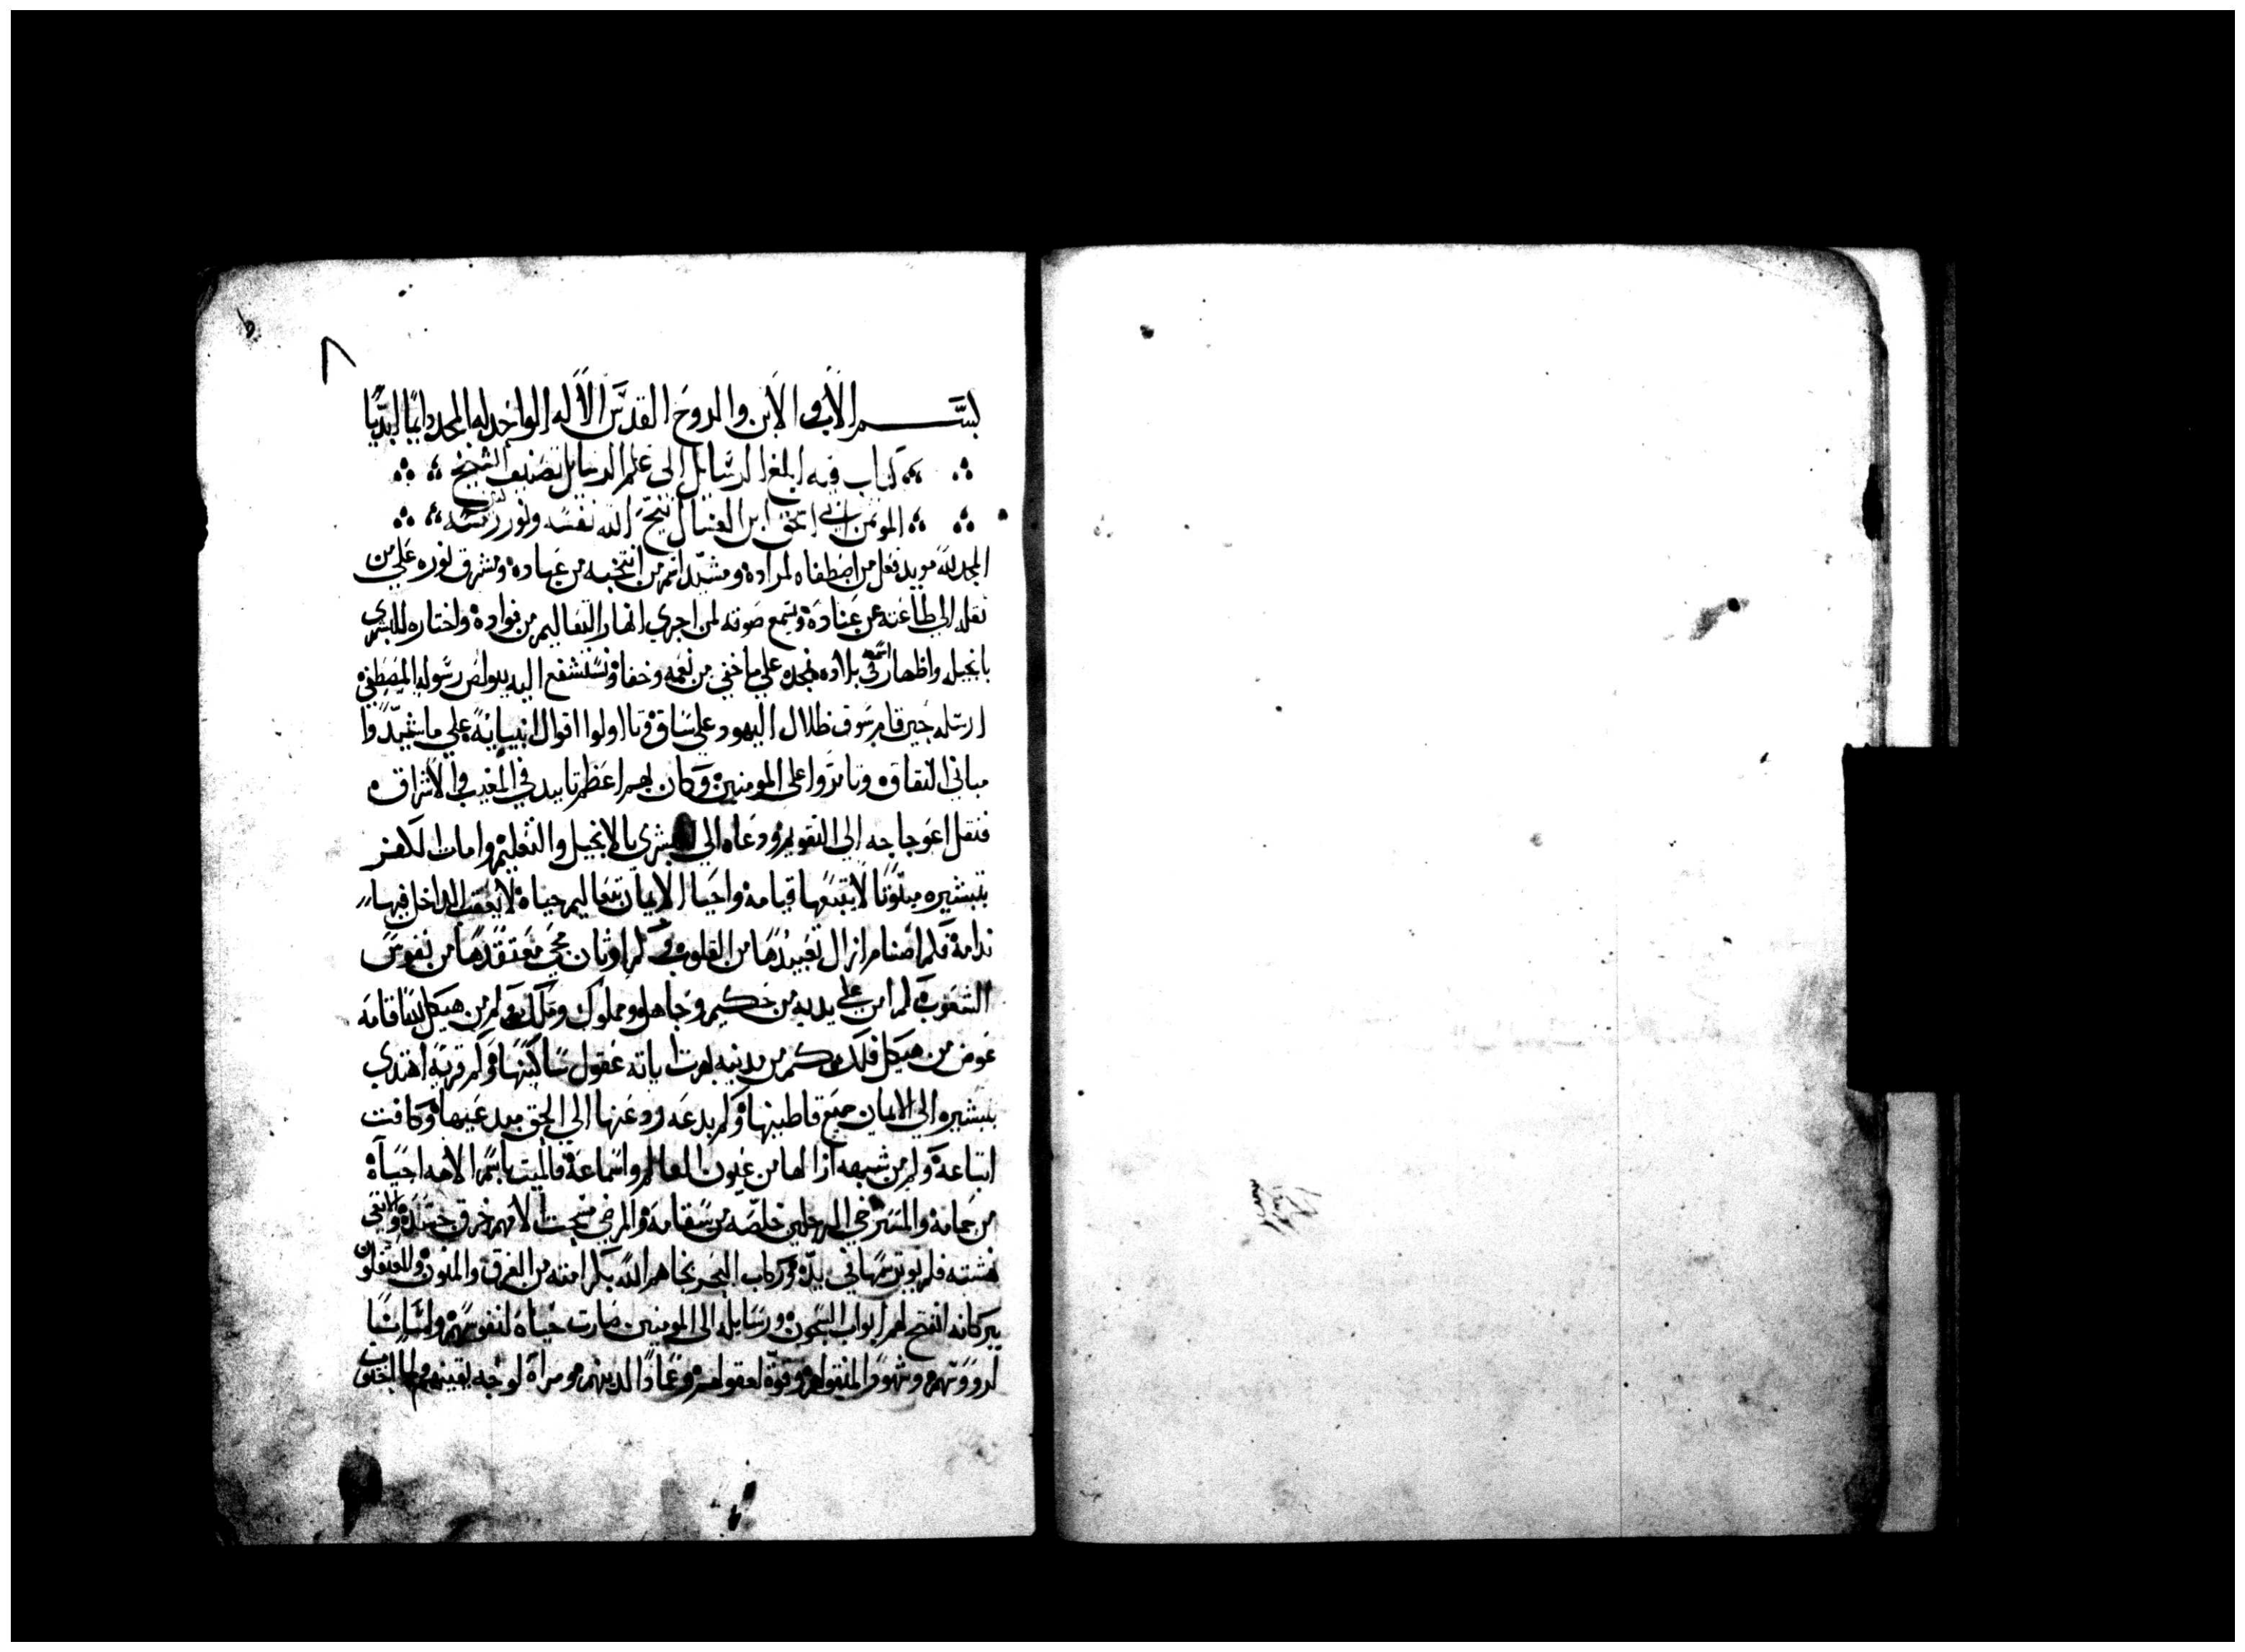 بسم الاب والابن والروح القدس الالاه الواحد له المجد دايمًا ابديًا
كتاب فيه ابلغ الرسايل الى علم الرسايل تصنيف الشيخ
الموتمن ابي اسحق ابن العسال نيح الله نفسه ونور رمسه
المجد لله مويد فعل من اصطفاه لمراده ومشيد اسم من انتخبه من عباده ومشرق نوره علي من
نقله الي طاعته عن عناده ومسمع صوته لمن اجري انهار التعاليم من فواده واختاره للبشري
بانجيله واظهار اسمه في بلاده نمجده علي ما خفي من نعمه وخفا ونستشفع اليه ببولص رسوله المصطفي
ارسله حين قام سوق ظلال اليهود علي ساق وتااولوا اقوال انبيايه علي ما شيدوا
مباني النقاق وتامروا على المومنين وكان لهم اعظم تاييد في المغرب والاشراق
فنقل اعوجاجه الي التقويم ودعاه الي البشري بالانجيل والتعليم وامات الكفر
بتبشيره موتًا لا يتبعها قيامه واحيا الايمان بتعاليم حياة لا يعقب الداخل فيها
ندامة فكم اصنام ازال تعبيدها من القلوب وكم اوثان محي معتقدها من نفوس
الشعوب وكم امن علي يديه من حكيم وجاهل ومملوك وملك وكم من هيكل لله اقامه
عوض من هيكل فلك وكم من مدينه بهرت اياته عقول ساكنيها وكم قرية اهتدي
بتبشيره الي الايمان جميع قاطنيها وكم بدعه ردع عنها الي الحق مبدعيها وكافت
اتباعه وكم من شبهه ازالها من عيون العالم واسماعه فالميت باسم الاله احياه
من حمامه والمسترخي الرجلين خلصه من سقامه والمرضي خرق جسده والافعي
نهشته فلم يوثر سمها في يده وركاب البحر نجاهم الله بكرامته من الغرق والمنون والمعتقلون
ببركاته انفتح لهم ابواب السجون ورسايله الى المومنين صارت حياة لنفوسهم ولباسًا
لرووسهم وقوة لعقولهم وعمادًا لدينهم ومراة لوجه يقينهم